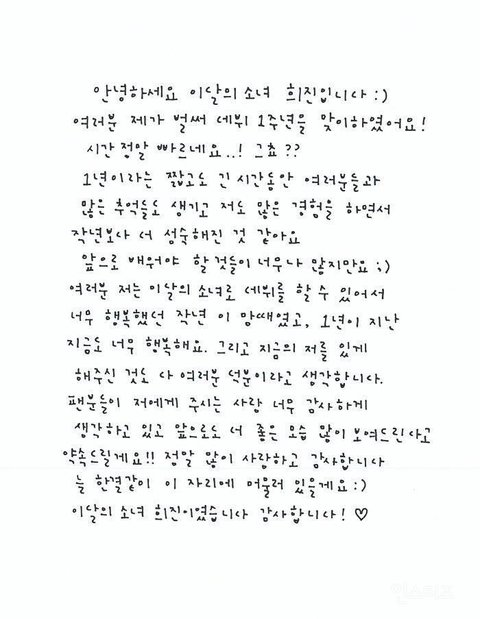 안녕하세요 이달의 소녀 희진입니다 :)
여러분 제가 벌써 데뷔 1주년을 맞이하였어요!
시간 정말 빠르네요..! 그쵸??
1년이라는 짧고도 긴 시간동안 여러분들과
많은 추억들도 생기고 저도 많은 경험을 하면서
작년보다 더 성숙해진 것 같아요
앞으로 배워야 할 것들이 너무나 많지만요 ;)
여러분 저는 이달의 소녀로 데뷔를 할 수 있어서
너무 행복했던 작년 이 맘때였고, 1년이 지난
지금도 너무 행복해요. 그리고 지금의 저를 있게
해주신 것도 다 여러분 덕분이라고 생각합니다.
팬분들이 저에게 주시는 사랑 너무 감사하게
생각하고 있고 앞으로도 더 좋은 모습 많이 보여드린다고
약속드릴게요!! 정말 많이 사랑하고 감사합니다
늘 한결같이 이 자리에 머물러 있을게요 :)
이달의 소녀 희진이였습니다 감사합니다! ♡
인스티즈